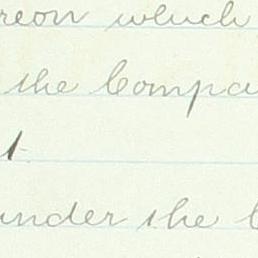 reon which
the Compa
t
under the